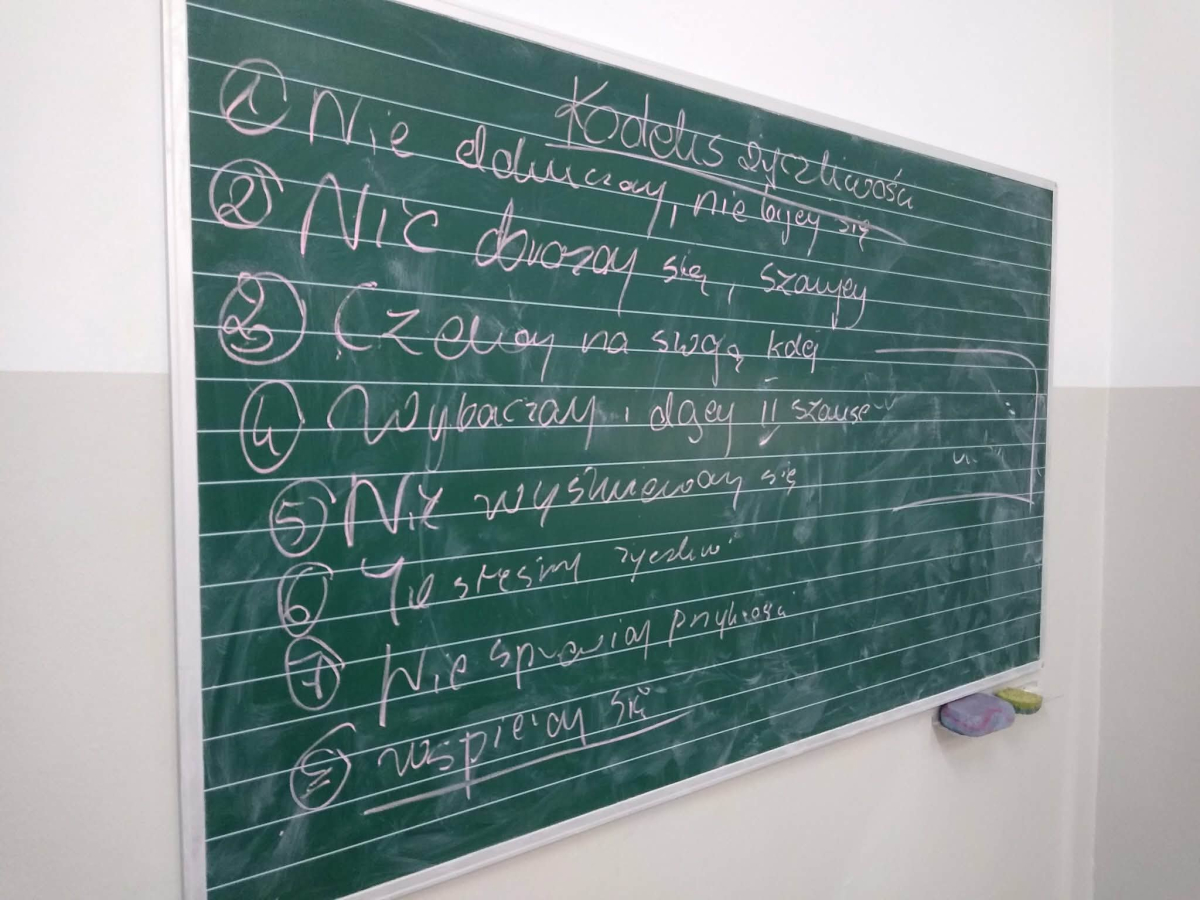 Kodeks życzliwości
① Nie dokuczaj, nie bijcy się
② Nie obrażaj się, szanujcy
③ Czekaj na swoją kolej
④ Wybaczaj i dajcy II szanse
⑤ Nie wyśmiewaj się
⑥ życzliwi
⑦ Nie sprawiaj przykrości
⑧ Wspieraj się